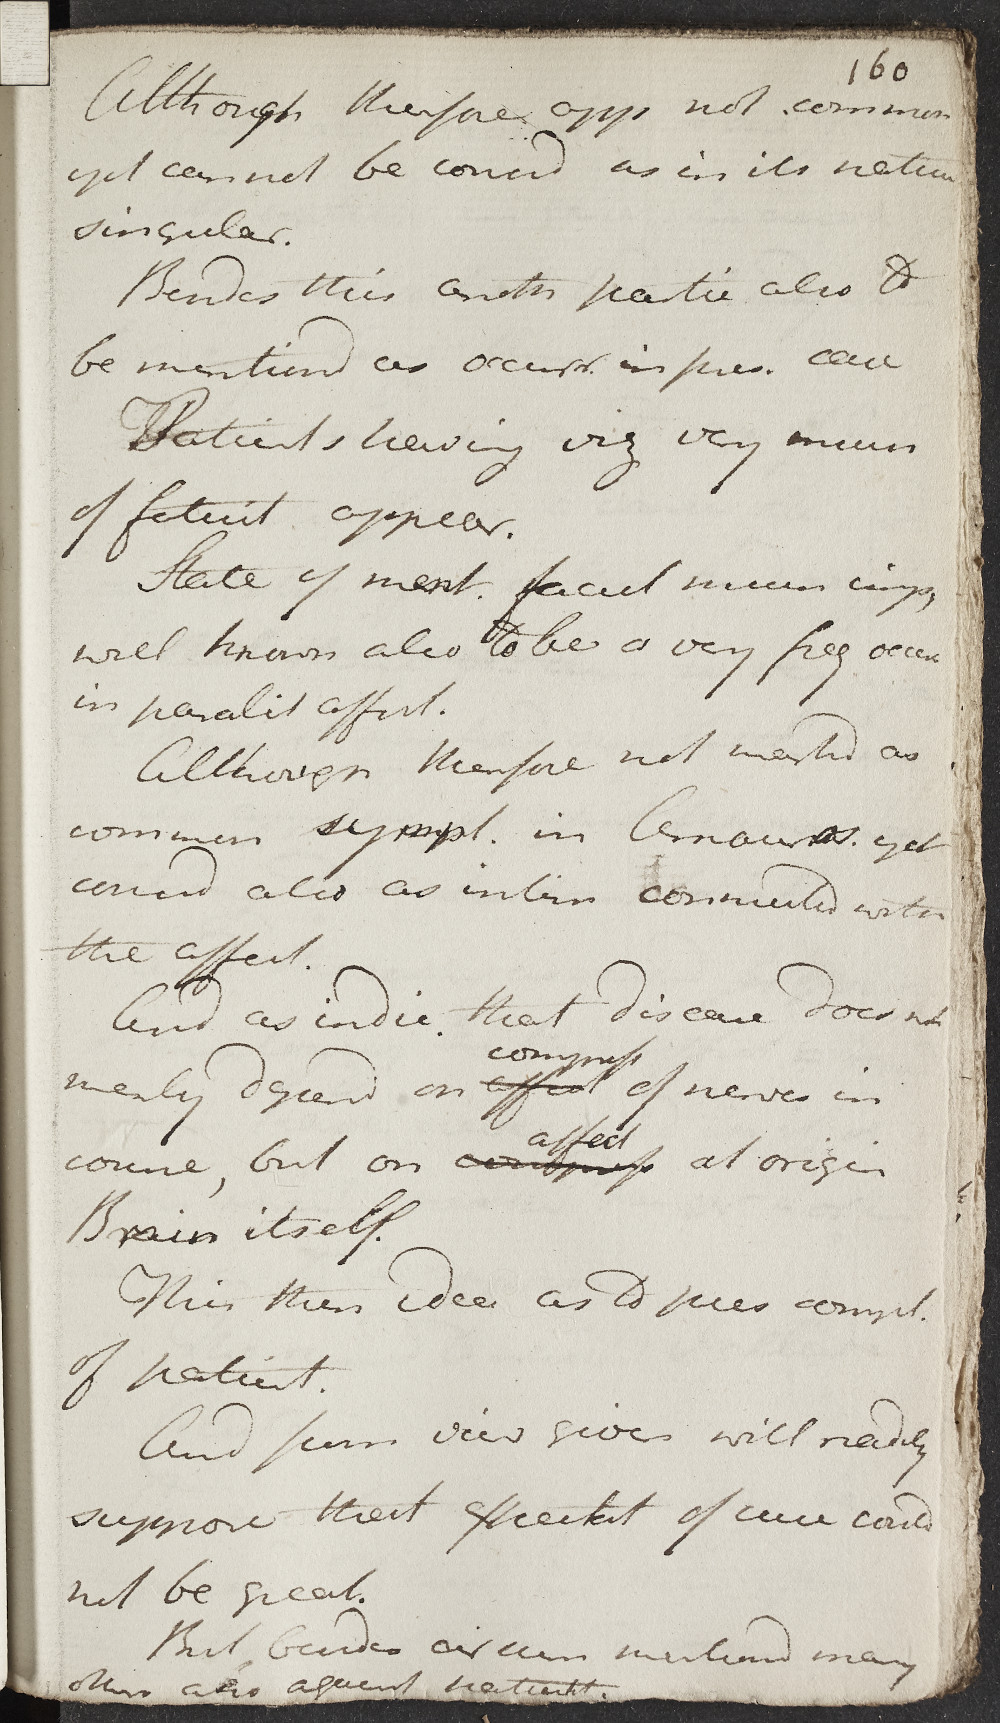 160
Although therefore opp not common
yet cannot be consid as in its nature
singular.
Besides this anoth partic also to
be mentiond as occurr. in pres. case
Patients having viz very much
of fatuit appear.
State of ment. facult much imp,
well known also to be a very freq occur
in paralit affect.
Although therefore not markd as
common sympt. in Amauros. yet
consid also as intim connected with
the affect.
And as indic. that disease does not
merly depend on compress affect of nerves in
course, but on affect compress at origin
Brain itself.
This then idea as to pres compl.
of patient.
And from view given will readily
suppose that expectat of cure could
not be great.
But besides circum mentiond many
others also against patient.